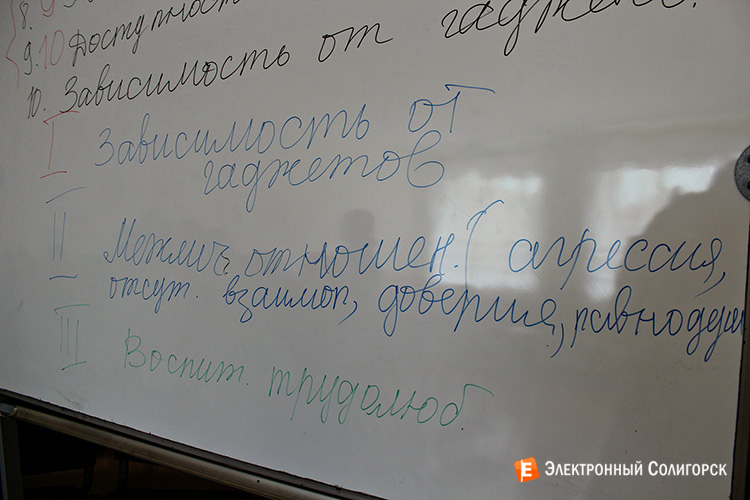 8. 9
9. 10 Доступность
10. Зависимость от гаджетов.
I Зависимость от
гаджетов
II Межлич. отношен. (агрессия,
отсут. взаимоп, доверия, равнодуш
III Воспит. трудолюб.
Электронный Солигорск